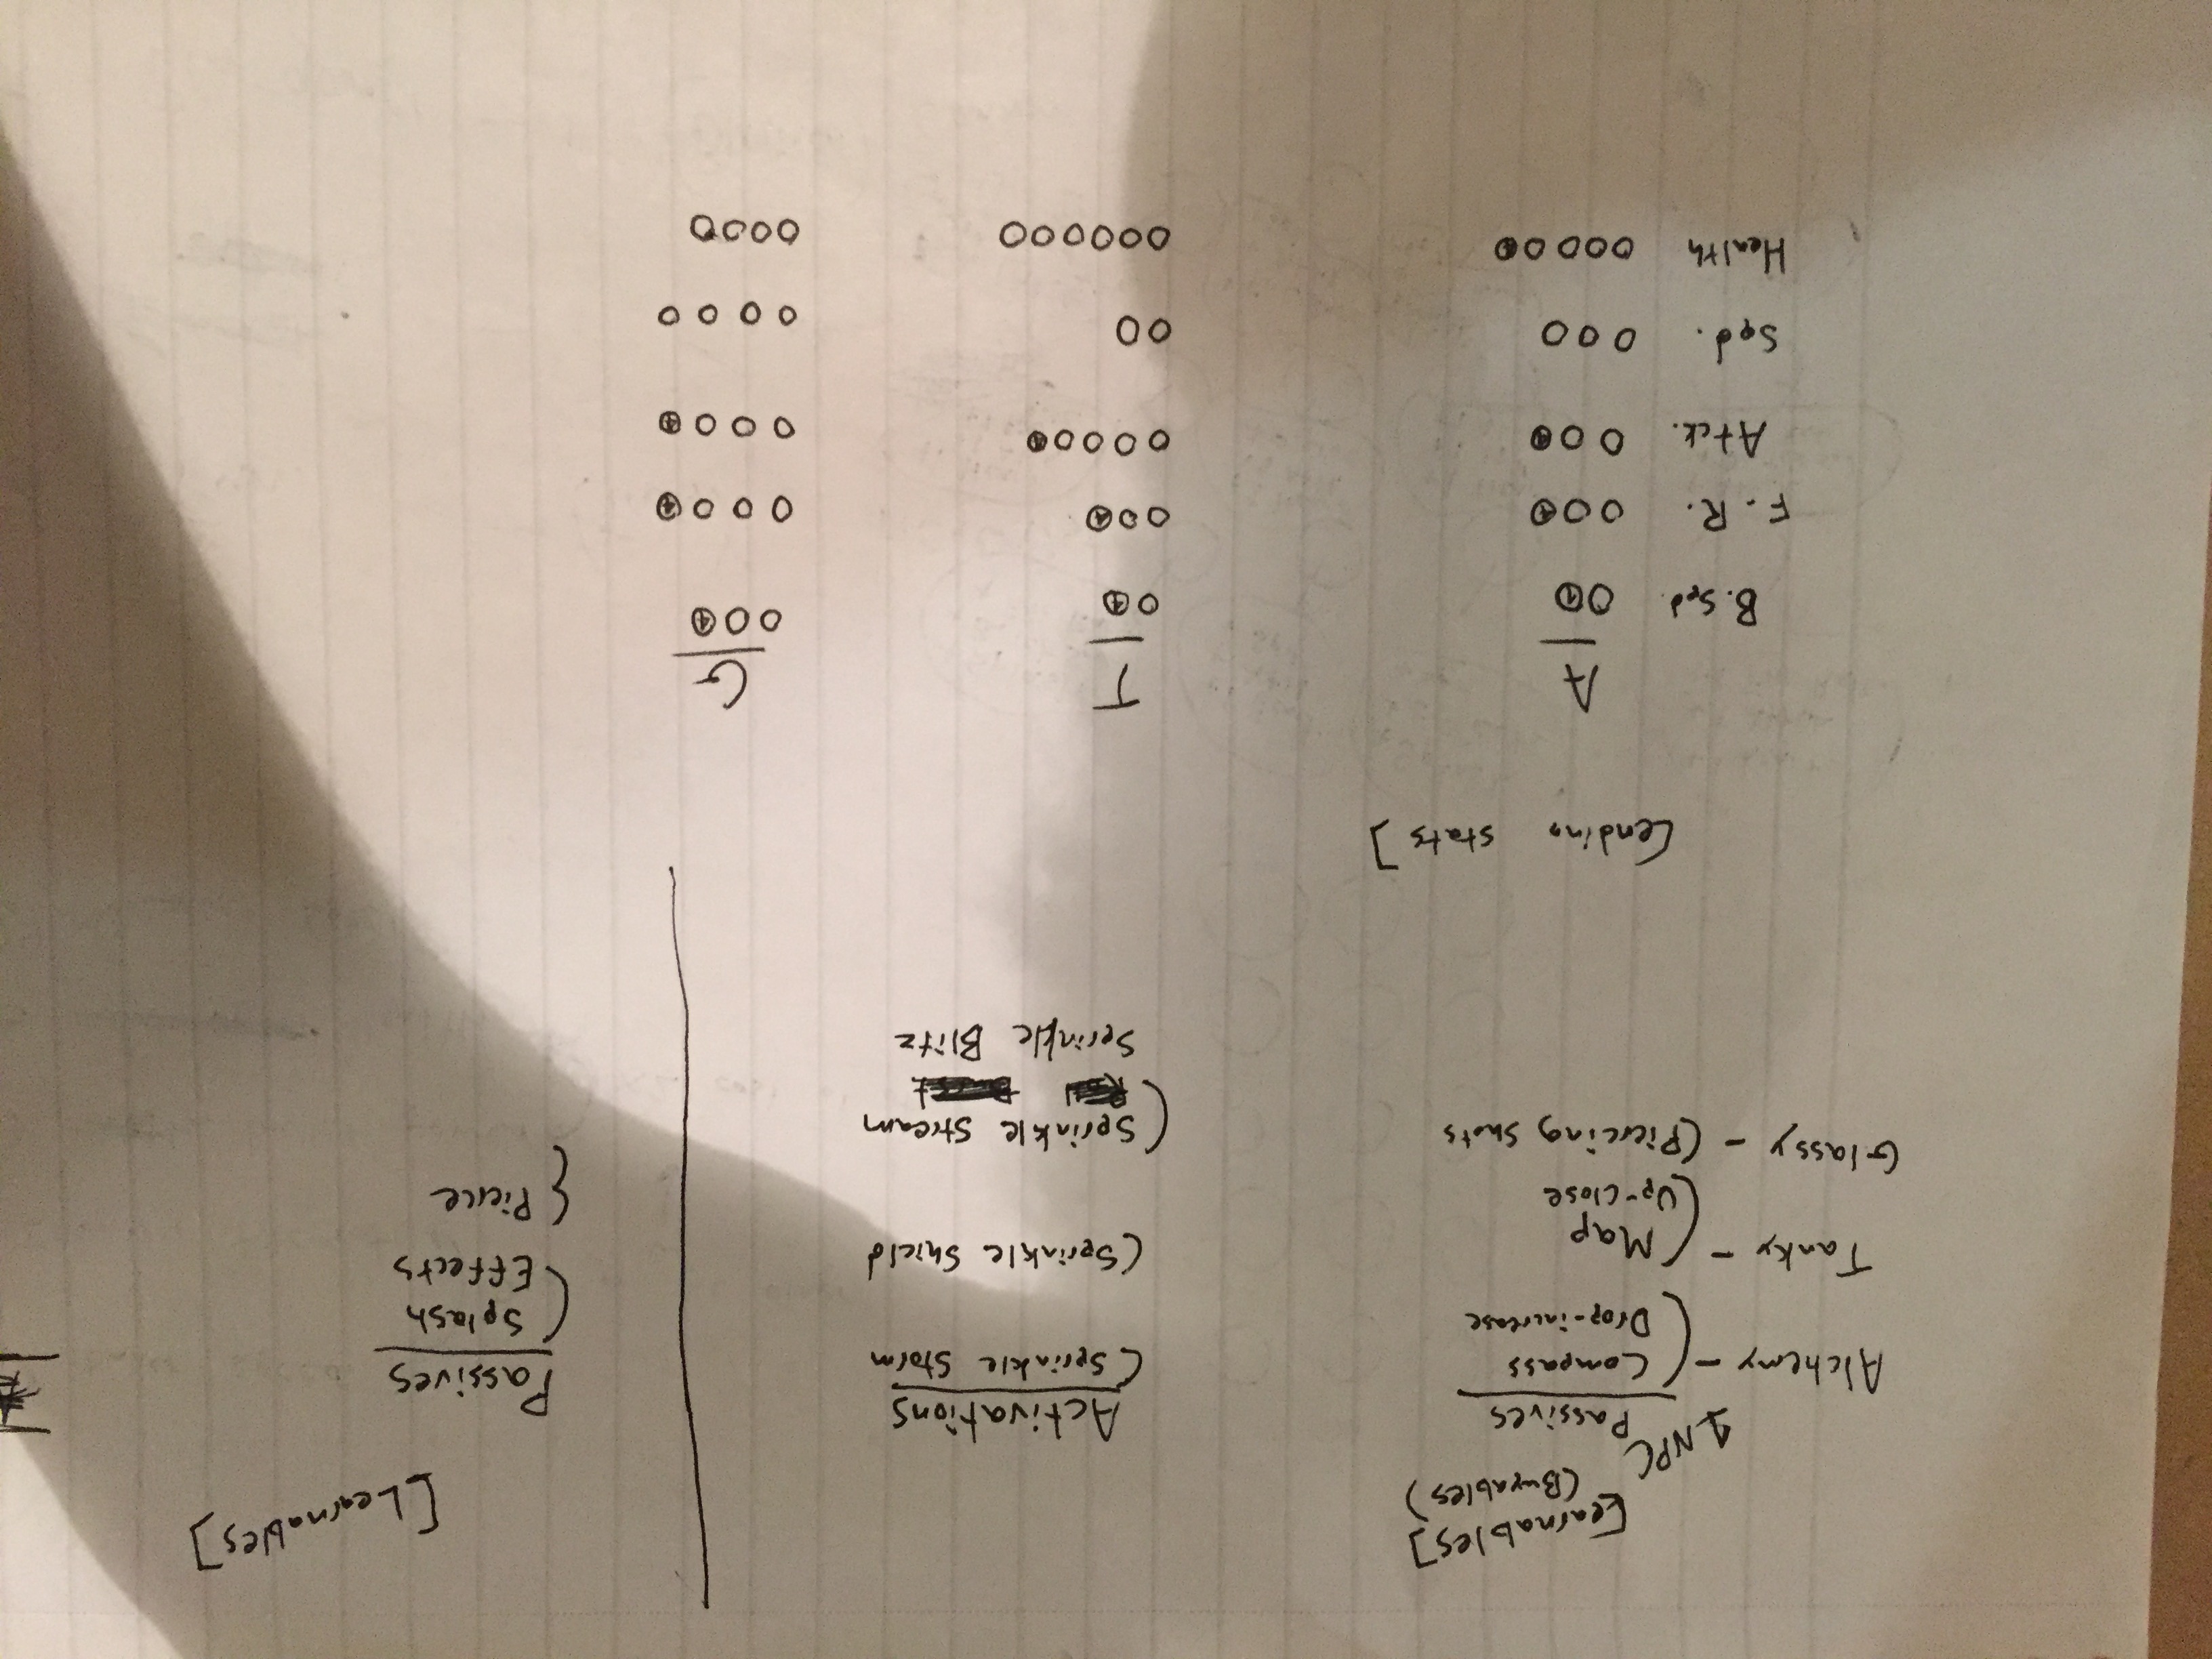 [Earnables]
(Buyables)
1 NPC
Passives
Alchemy - (Compass
Drop-increase
Tanky - (Map
Up-close
Glassy - (Piercing shots
Activations
(Sprinkle Storm
(Sprinkle Shield
(Sprinkle Stream
Sprinkle Blitz
[Learnables]
Passives
(Splash
Effects
{ Pierce
[ending stats]
A T G
B. Spd.
F. R.
Atck.
Spd.
Health